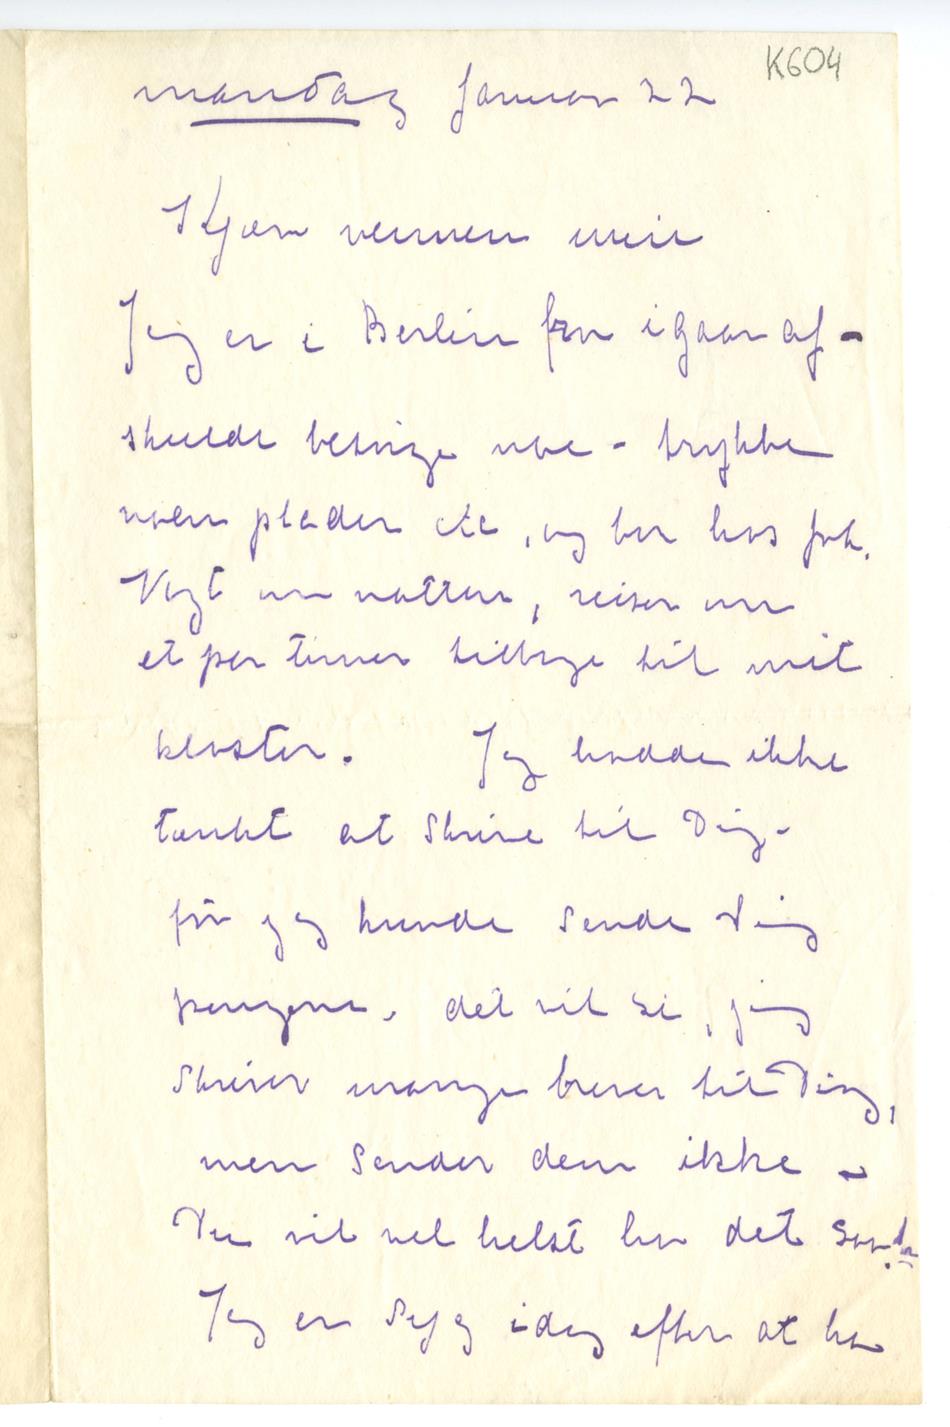 K604
mandag Januar 22
Kjære vennen min
Jeg er i Berlin fra igaar af -
skulde besørge noe - trykke
noen plader etc, og bor hos frk.
Vogt om natten, reiser om
et par timer tilbage til mit
kloster. Jeg hadde ikke
tænkt at skrive til Dig -
før jeg kunde sende Dig
pengene. det vil si, jeg
skriver mange brever til Dig,
men sender dem ikke -
Du vil vel helst ha det saa.
Jeg er syg idag efter at ha